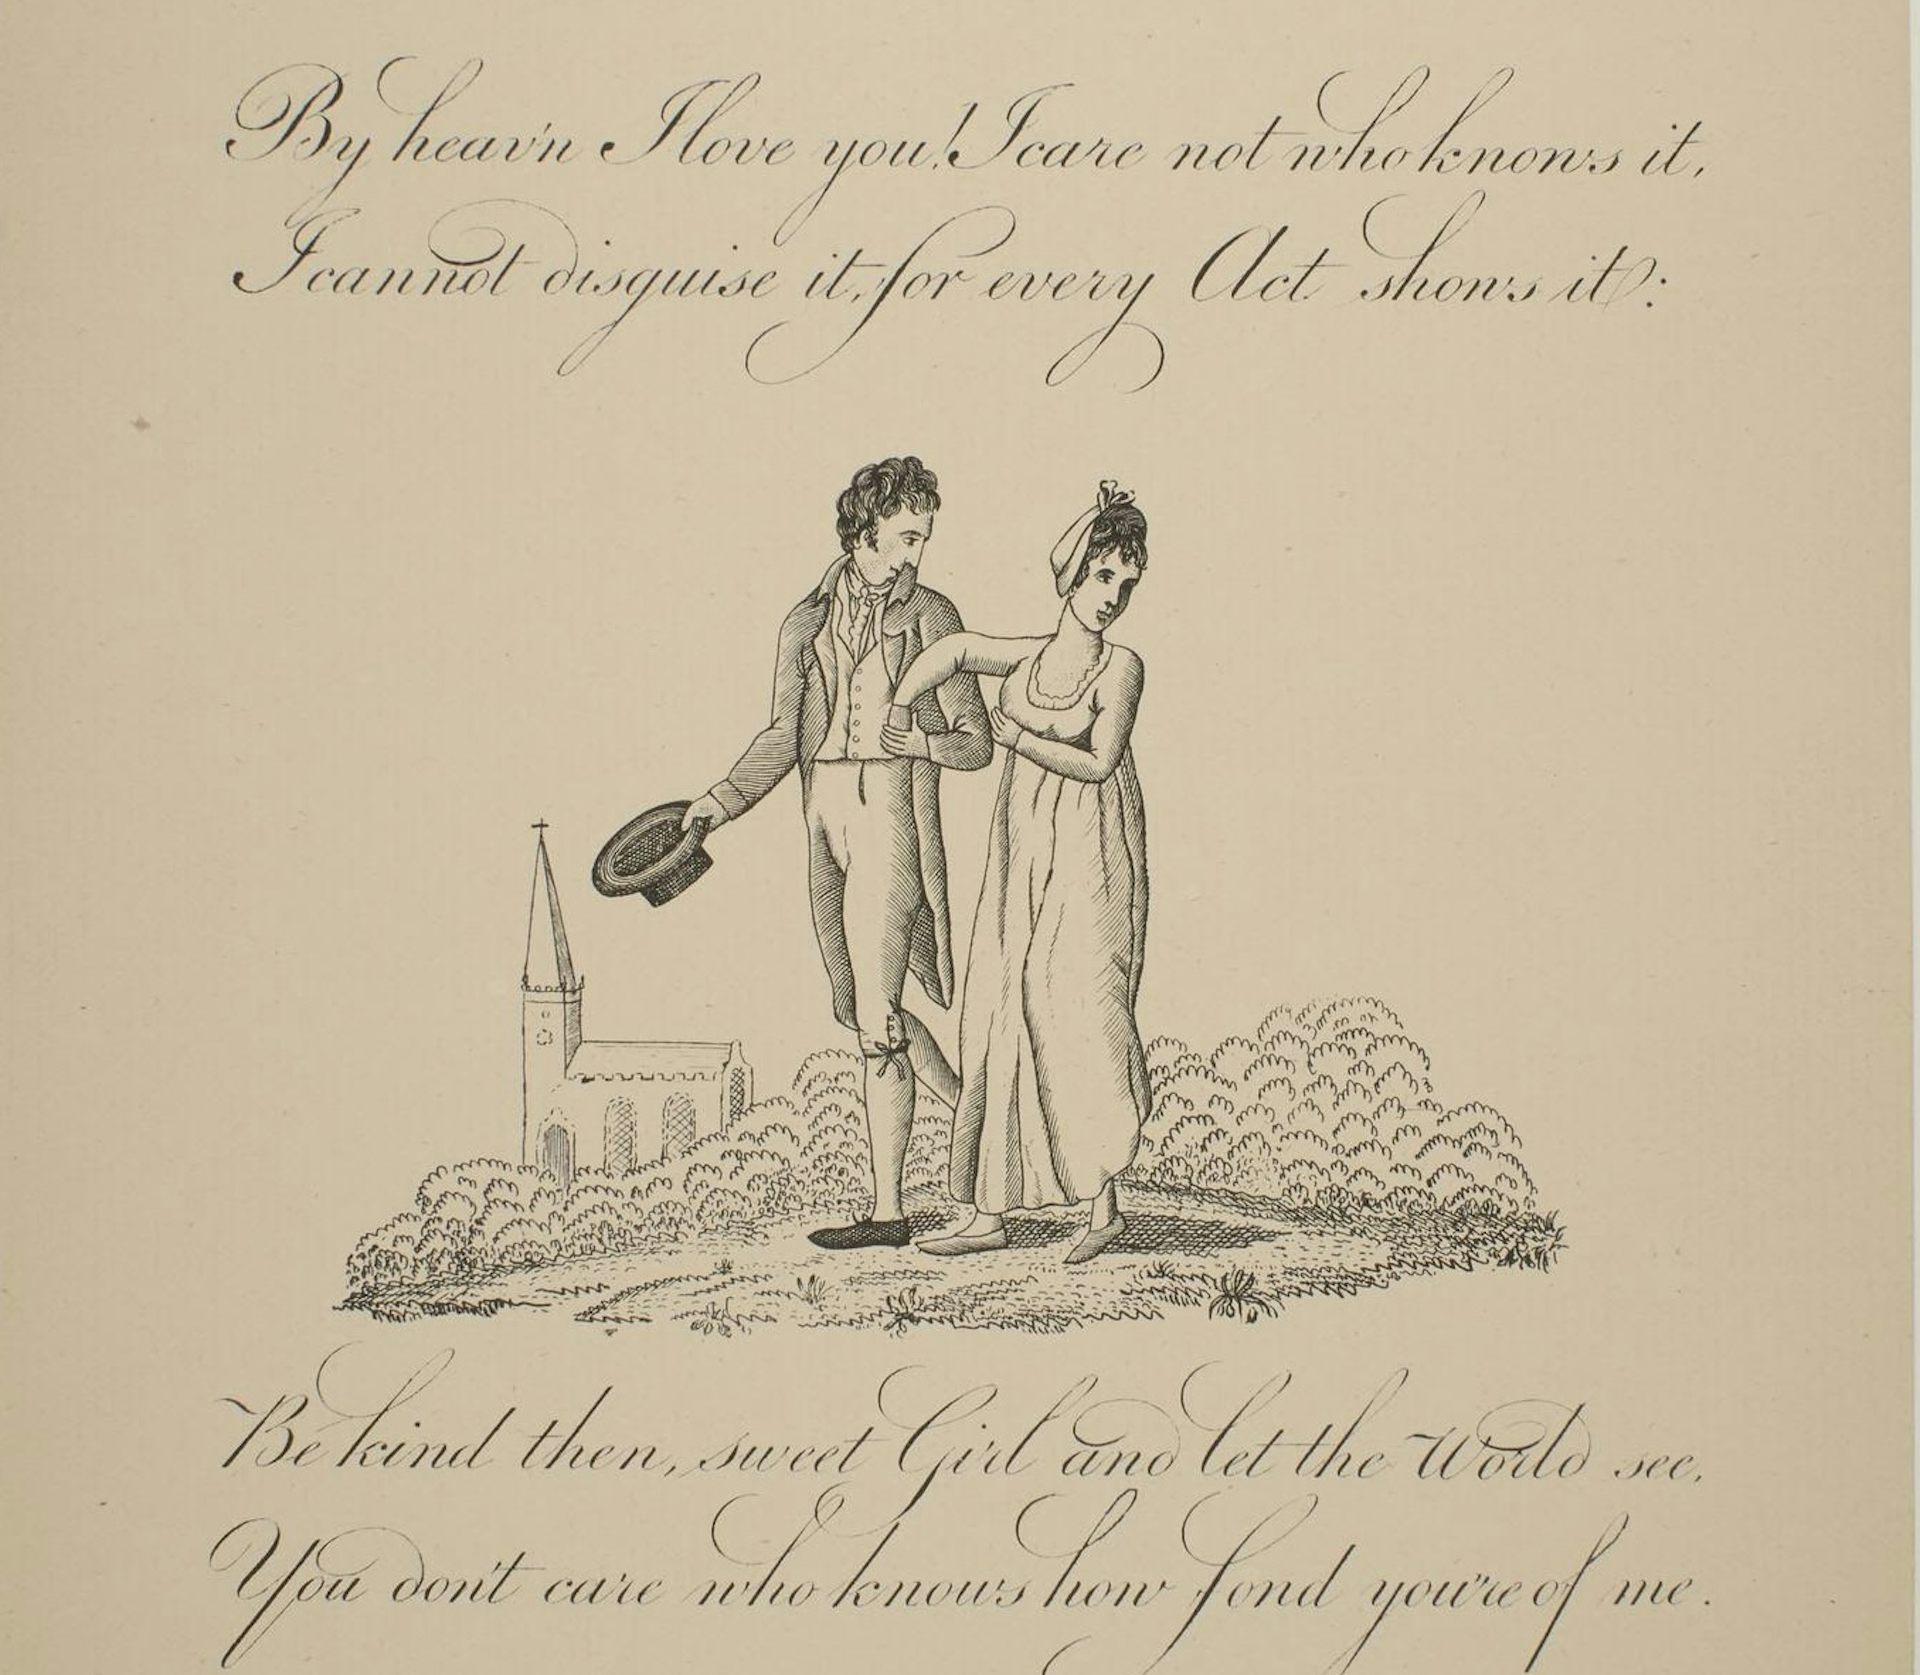 By heav'n I love you! I care not who knows it,
I cannot disguise it, for every Act shows it:
Be kind then, sweet Girl and let the World see,
You don't care who knows how fond you're of me.